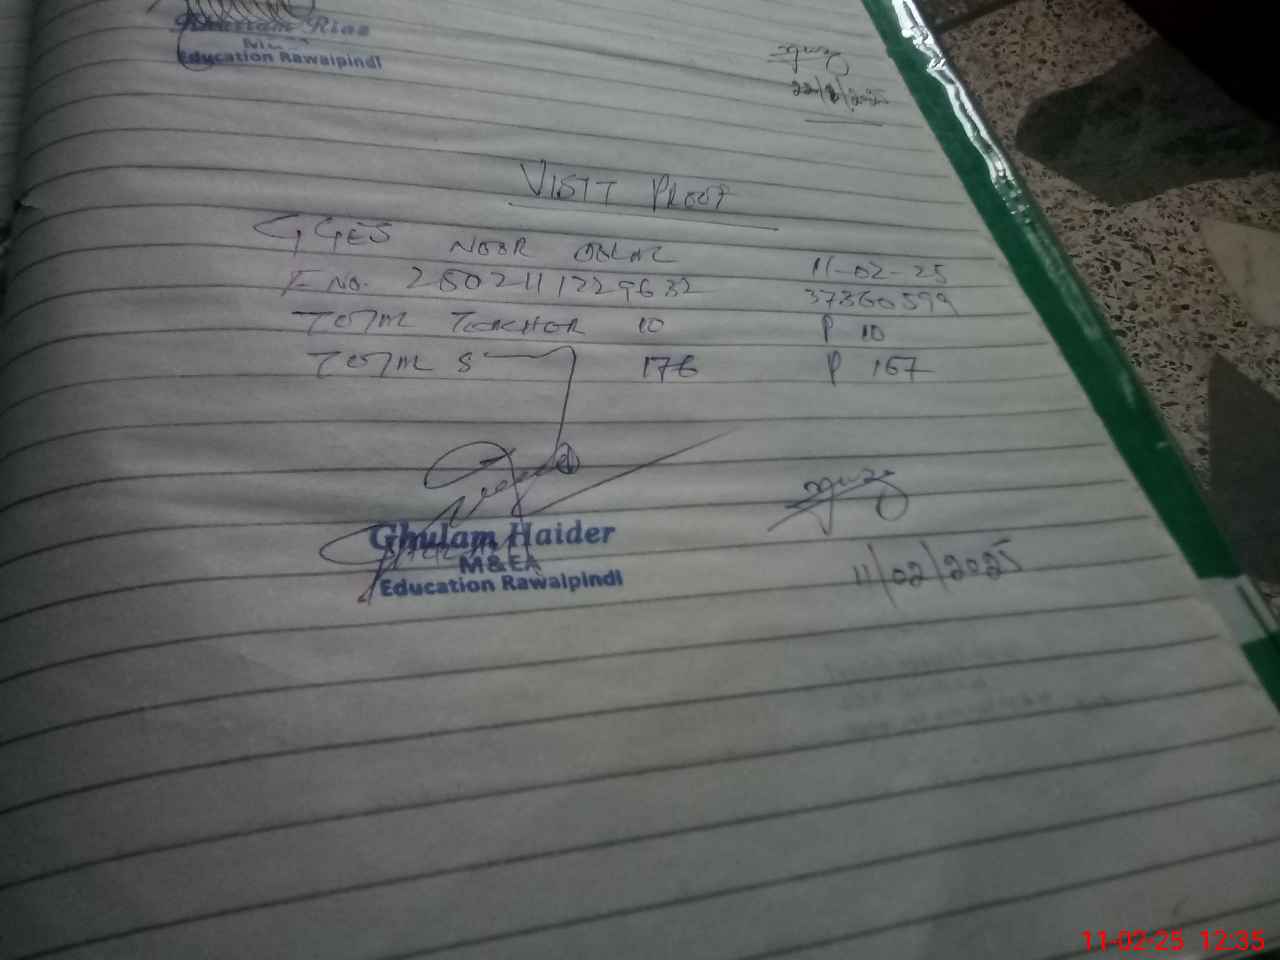 Ghulam Riaz
Education Rawalpindi
22/1/2025
VISIT PROOF
GGES NOOR
11-02-25
F No.
37360599
TOTAL TEACHER 10 P 10
TOTAL S 176 P 167
Ghulam Haider
M&EA
Education Rawalpindi
11/02/2025
11-02-25 12:35